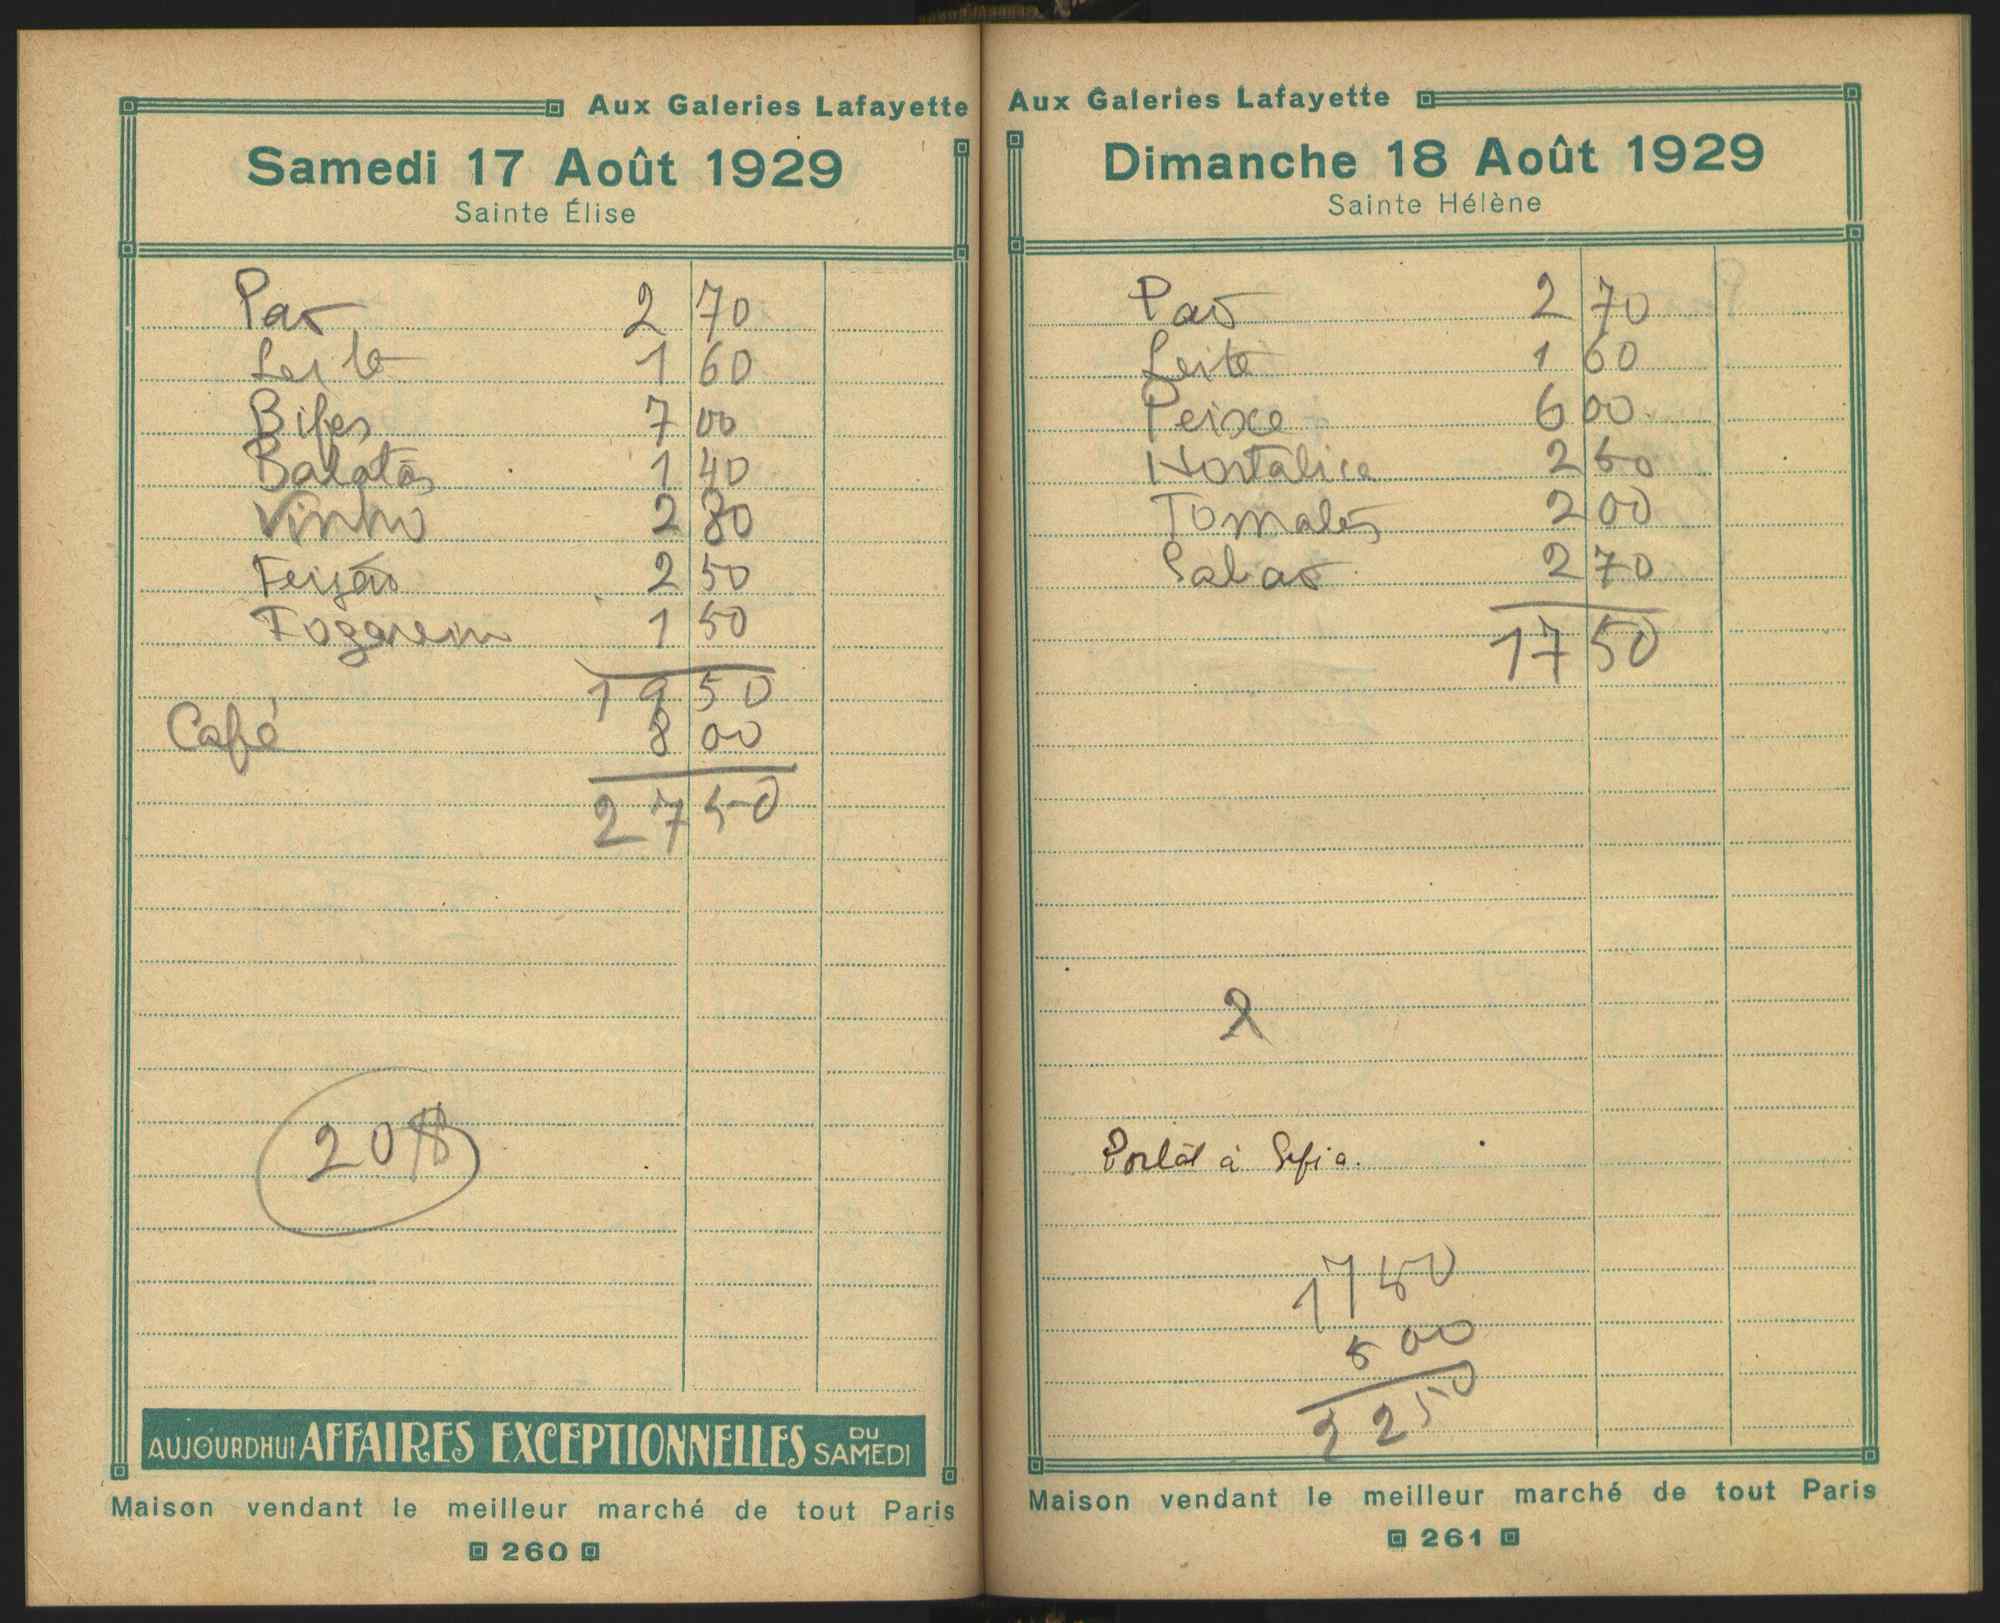 Aux Galeries Lafayette
Samedi 17 Août 1929
Sainte Élise
Pao 2 70
Leite 1 60
Bifes 7 00
Batatas 1 40
Vinho 2 80
Feijão 2 50
1 50
19 50
Café 8 00
27 50
20$
AUJOURDHUI AFFAIRES EXCEPTIONNELLES DU SAMEDI
Maison vendant le meilleur marché de tout Paris
260
Aux Galeries Lafayette
Dimanche 18 Août 1929
Sainte Hélène
Pao 2 70
Leite 1 60
Peixe 6 00
Hortaliça 2 50
Tomates 2 00
Sabao 2 70
17 50
2
Postal à Sofia.
17 50
5 00
2 2 50
Maison vendant le meilleur marché de tout Paris
261